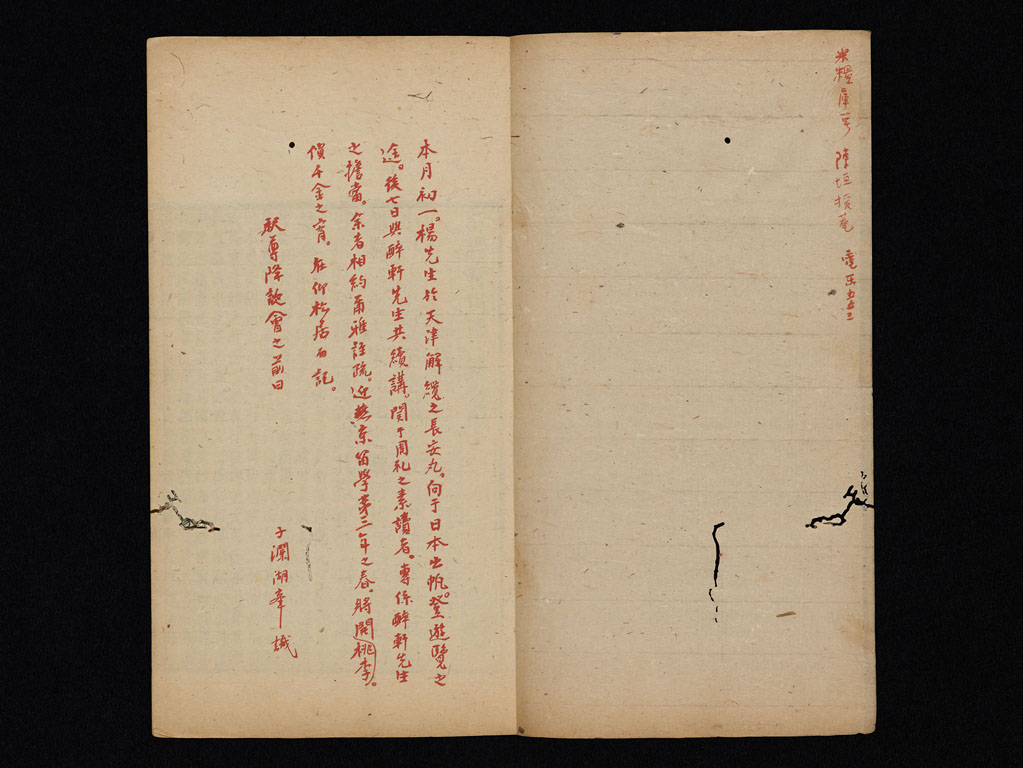 米糧庫一号 陳垣援菴 電五
本月初一。楊先生於天津解纜之長安丸。向于日本出帆。登遊覽之
途。後七日與醉軒先生共續講。関于周礼之素讀者。專係醉軒先生
之擔當。余者相約爾雅註疏。迎燕京留學第三年之春。將開桃李。
價千金之宵。在仰松居而記。
釈尊降誕會之前日
子瀾湖 識